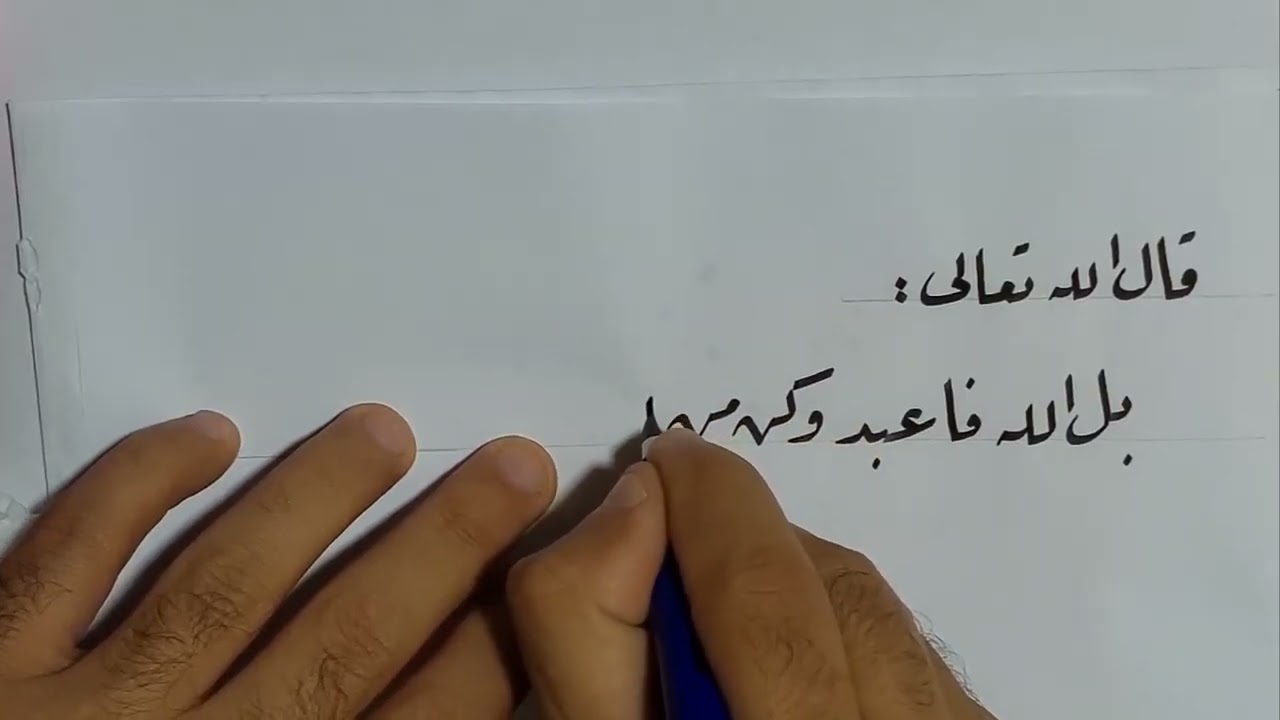 قال الله تعالى :
بل الله فاعبد وكن من